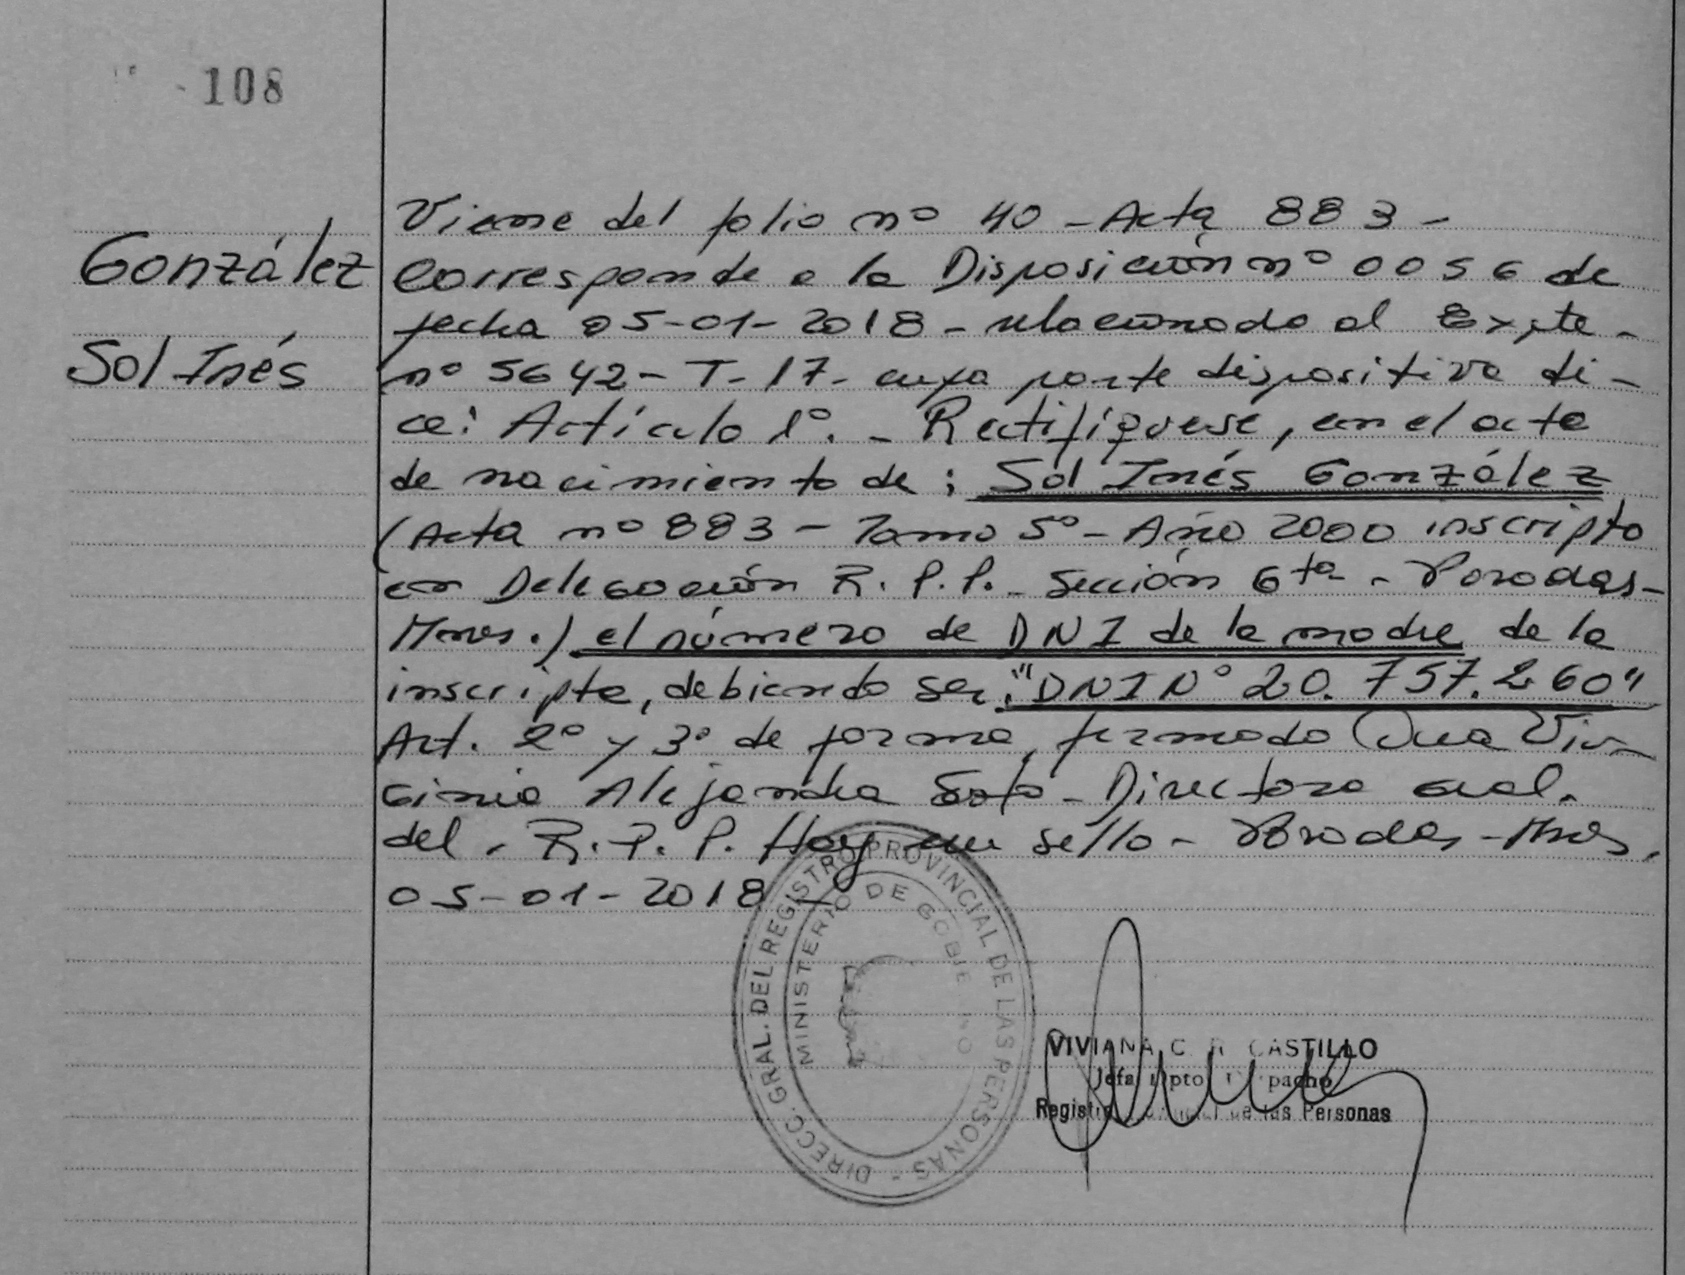 108
González
Sol Inés
Viene del folio nº 40 - Acta 883 -
Corresponde a la Disposición nº 0056 de
fecha 05-01-2018 - relacionado al Expte -
nº 5642 - T - 17 - cuya parte dispositiva di-
ce: Artículo 1º. - Rectifíquese, en el acta
de nacimiento de: Sol Inés González
(Acta nº 883 - Tomo 5º - Año 2000 inscripto
en Delegación R. P. P. Sección 6ta - Posadas -
Mnes.) el número de DNI de la madre de la
inscripta, debiendo ser: "DNI Nº 20.757.260"
Art. 2º y 3º de forma, firmado Dra Vir-
ginia Alejandra Soto - Directora Gral.
del . R. P. P. Hay un sello - Posadas - Mnes.
05-01-2018 -
DIRECC. GRAL. DEL REGISTRO PROVINCIAL DE LAS PERSONAS -
MINISTERIO DE GOBIERNO
VIVIANA C. R. CASTILLO
Jefa Dpto. Despacho
Registro Provincial de las Personas